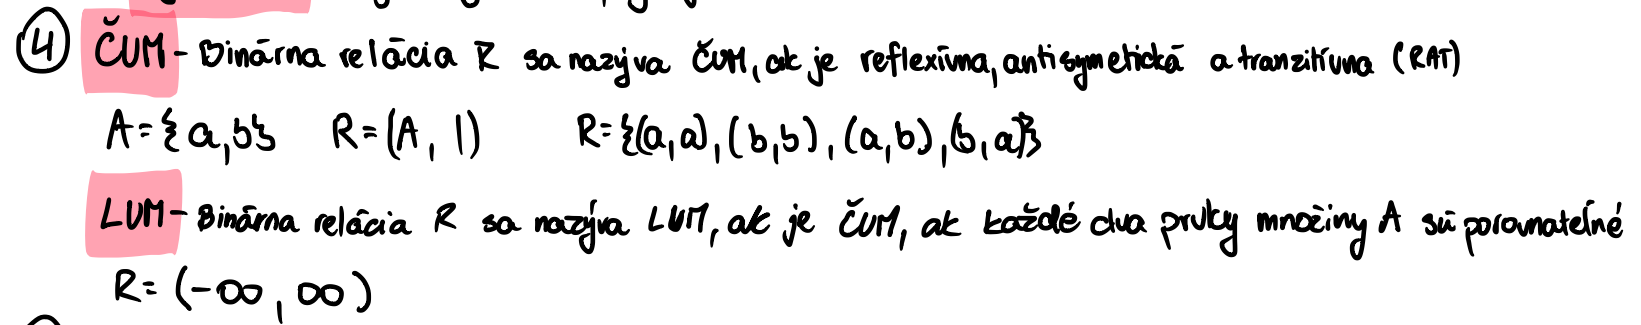 ④ ČUM - Binárna relácia R sa nazýva ČUM, ak je reflexívna, antisymetická a tranzitívna (RAT)
A={a,b} R=(A, |) R={(a,a),(b,b),(a,b),(b,a)}
LUM - Binárna relácia R sa nazýva LUM, ak je ČUM, ak každé dva prvky množiny A sú porovnateľné
R= (-∞, ∞)